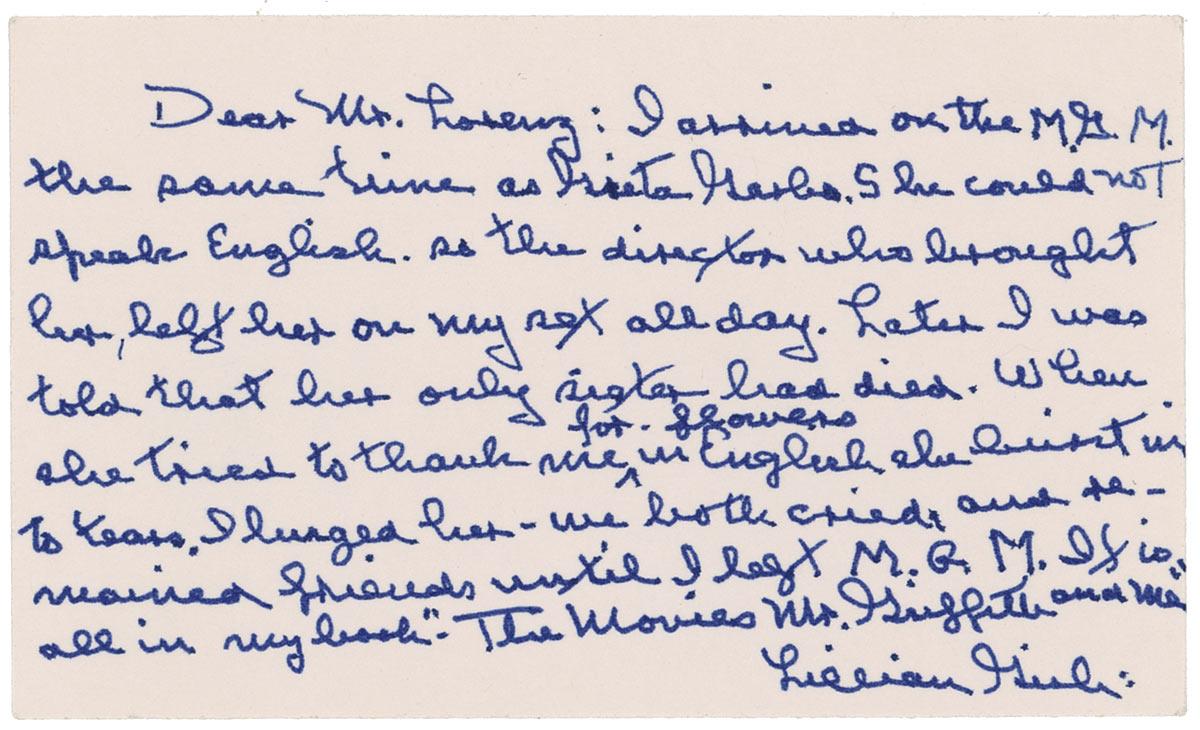 Dear Mr. Lorenz: I arrived on the M.G.M.
the same time as Greta Garbo. She could not
speak English. so the director who brought
her, left her on my set all day. Later I was
told that her only sister had died. When
for flowers
she tried to thank me ^ in English she burst in
to tears. I hugged her - we both cried, and re-
mained friends until I left M.G.M. It is
all in my book "- The Movies Mr. Griffith and Me"
Lillian Gish: